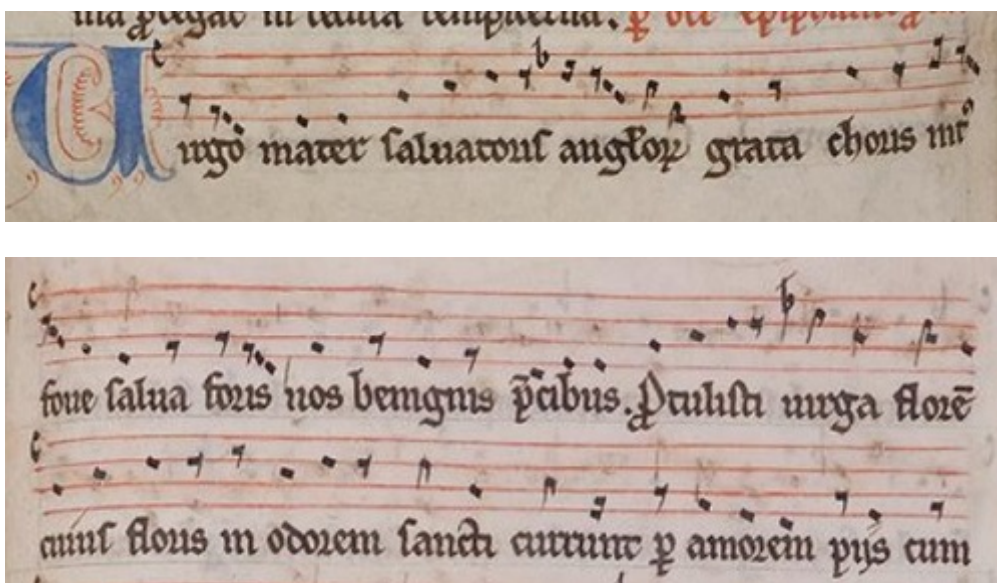 Uirgo mater saluatoris angl̄oꝝ grata choris int᷒
foue salua foris nos benignis p̄cibus. Protulisti uirga florē
cuius floris in odorem sancti currunt ꝑ amorem pijs cum